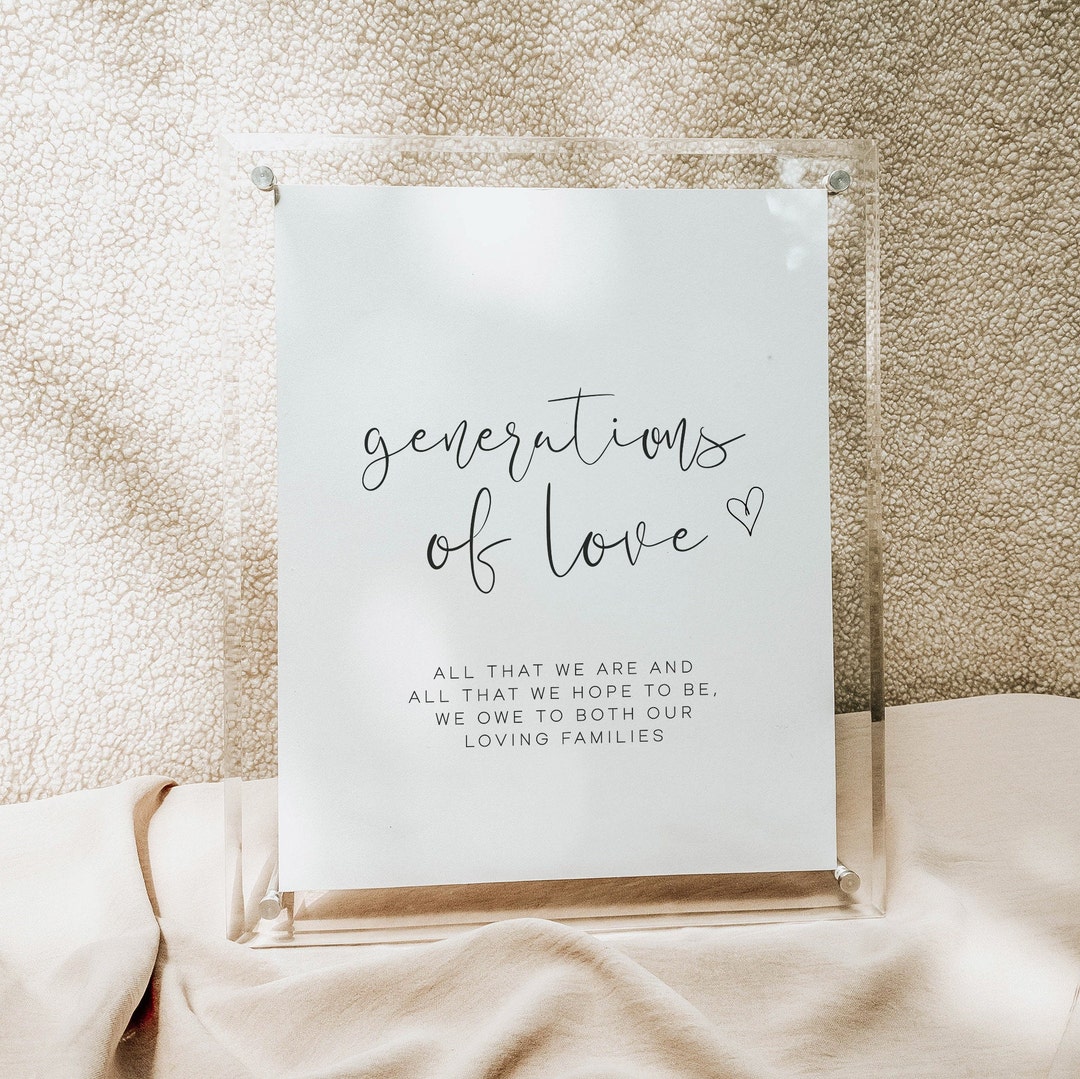 generations
of love
ALL THAT WE ARE AND
ALL THAT WE HOPE TO BE,
WE OWE TO BOTH OUR
LOVING FAMILIES